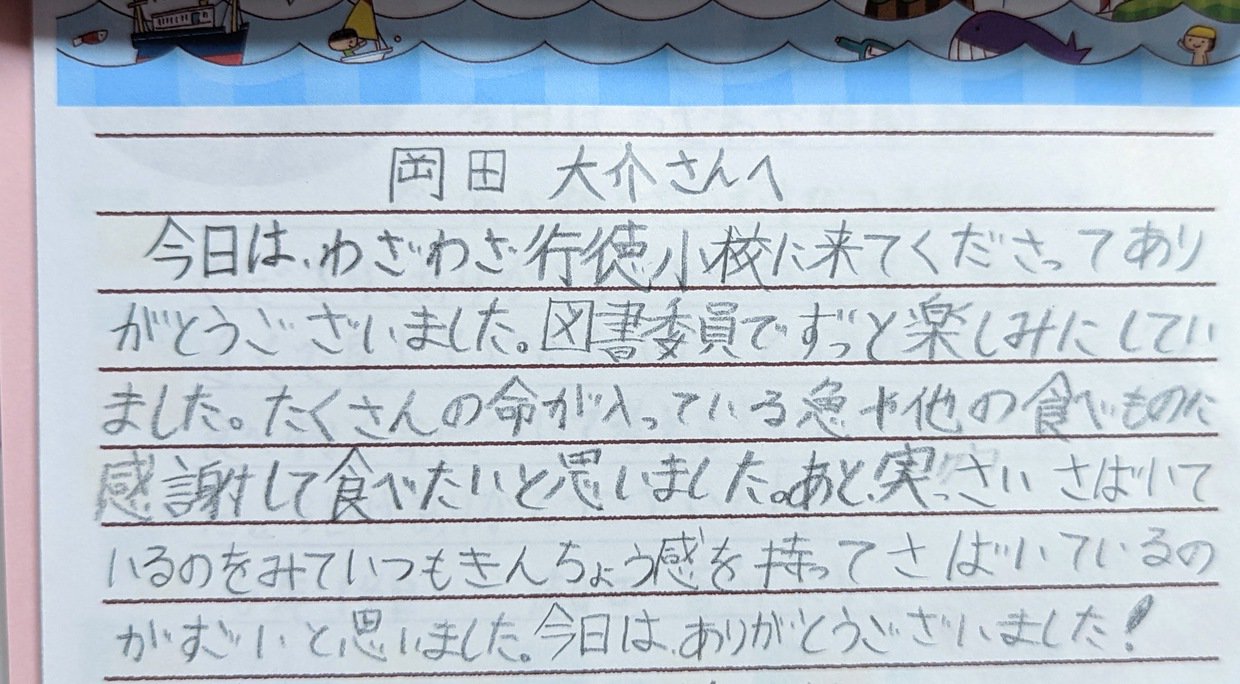 岡田 大介さんへ
今日は、わざわざ行徳小校に来てくださってあり
がとうございました。図書委員でずっと楽しみにしてい
ました。たくさんの命が入っている魚や他の食べものに
感謝して食べたいと思いました。あと、実っさい さばいて
いるのをみていつもきんちょう感を持ってさばいているの
がすごいと思いました。今日は、ありがとうございました!